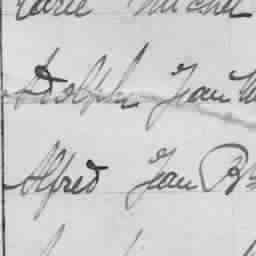 Michel
Adolph Jean
Alfred Jean B